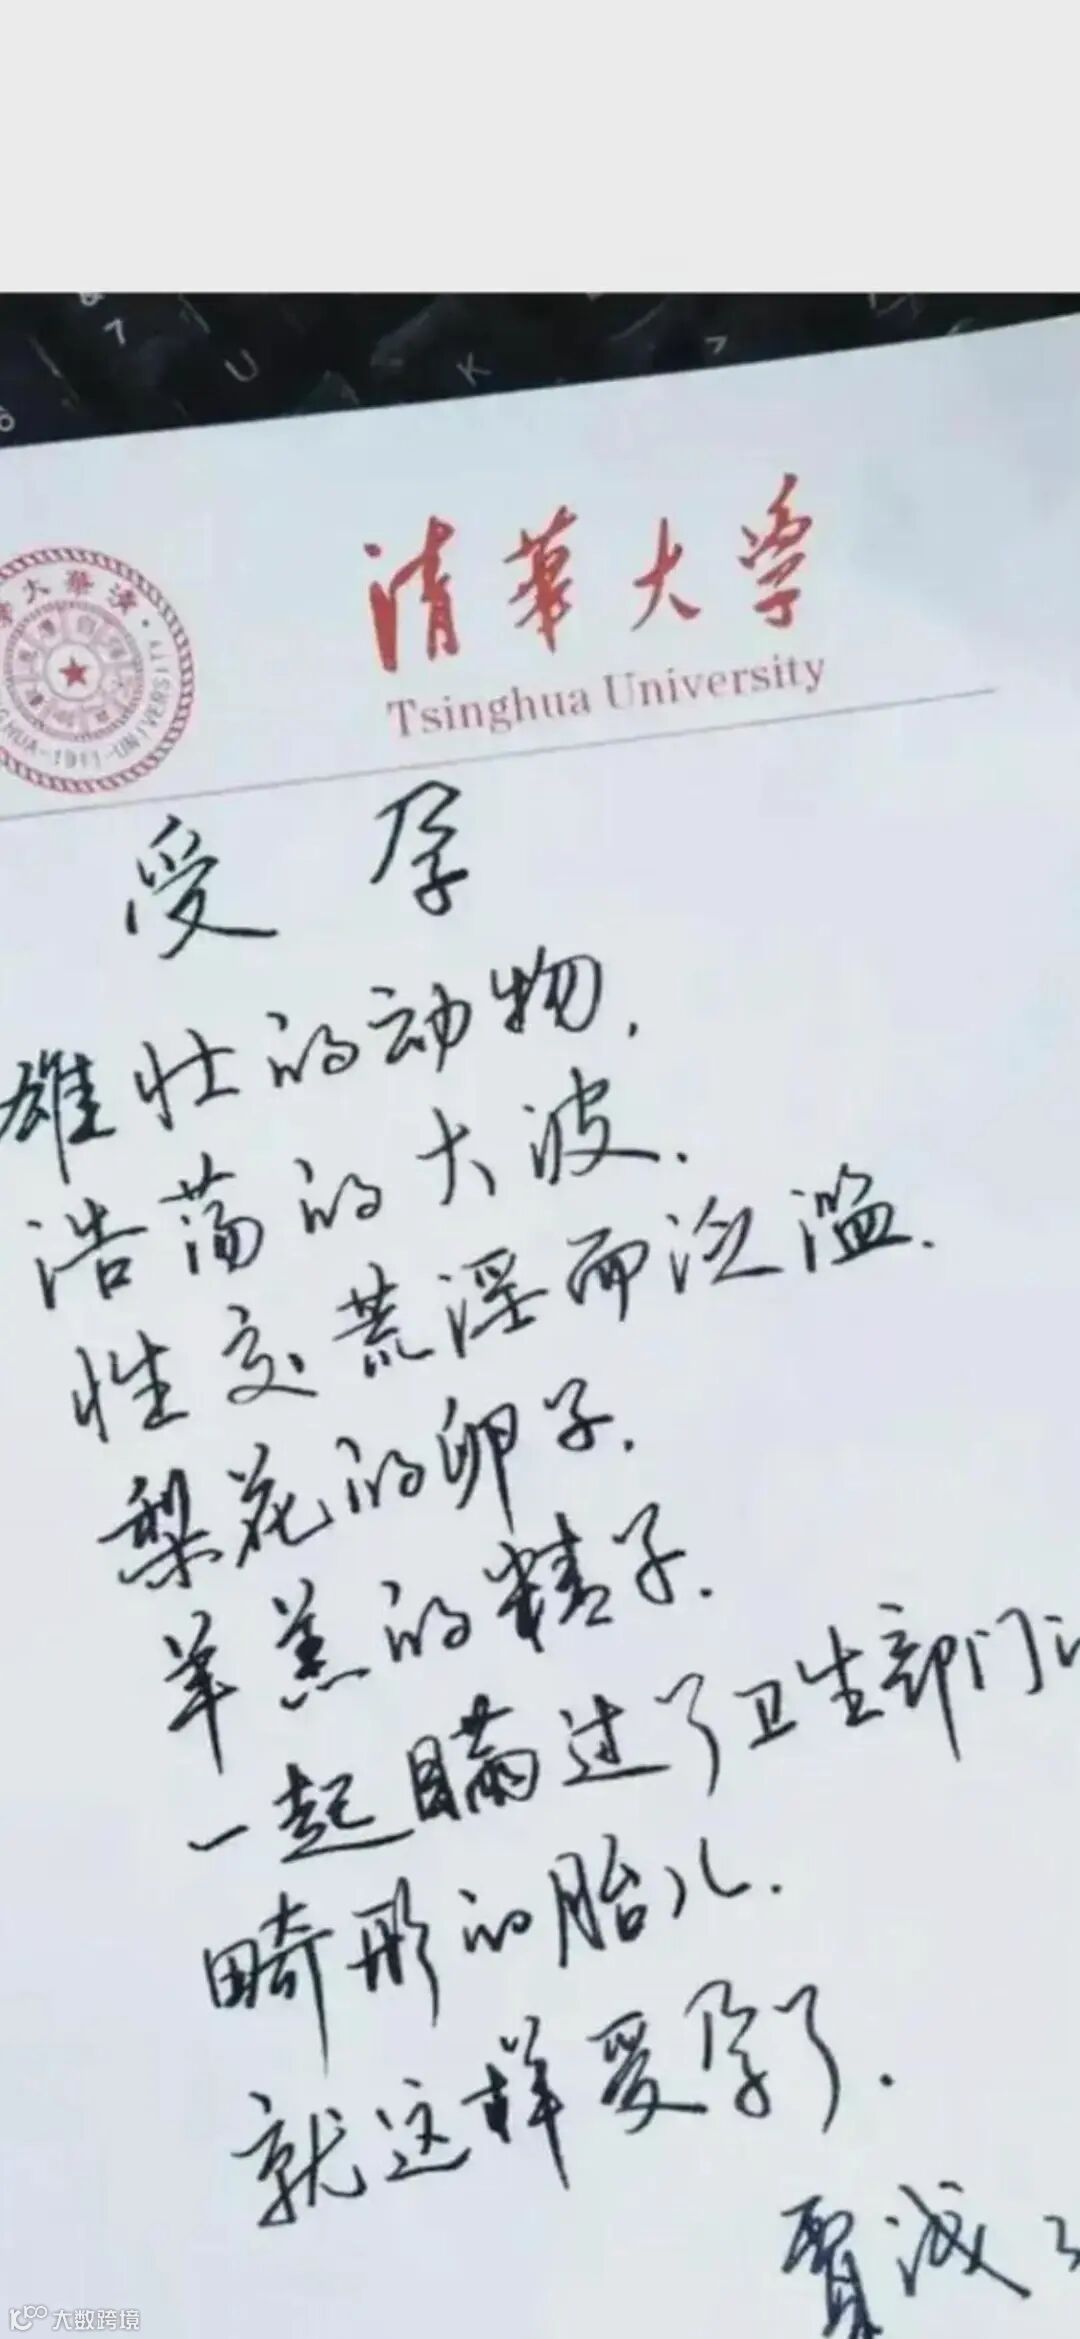 7
U
K
清華大学
Tsinghua University
受孕
雄壮的动物,
浩荡的大波.
性交荒淫而泛滥.
梨花的卵子.
羊羔的精子.
一起瞒过了卫生部门
畸形的胎儿.
就这样受孕了.
贾浅
大数跨境